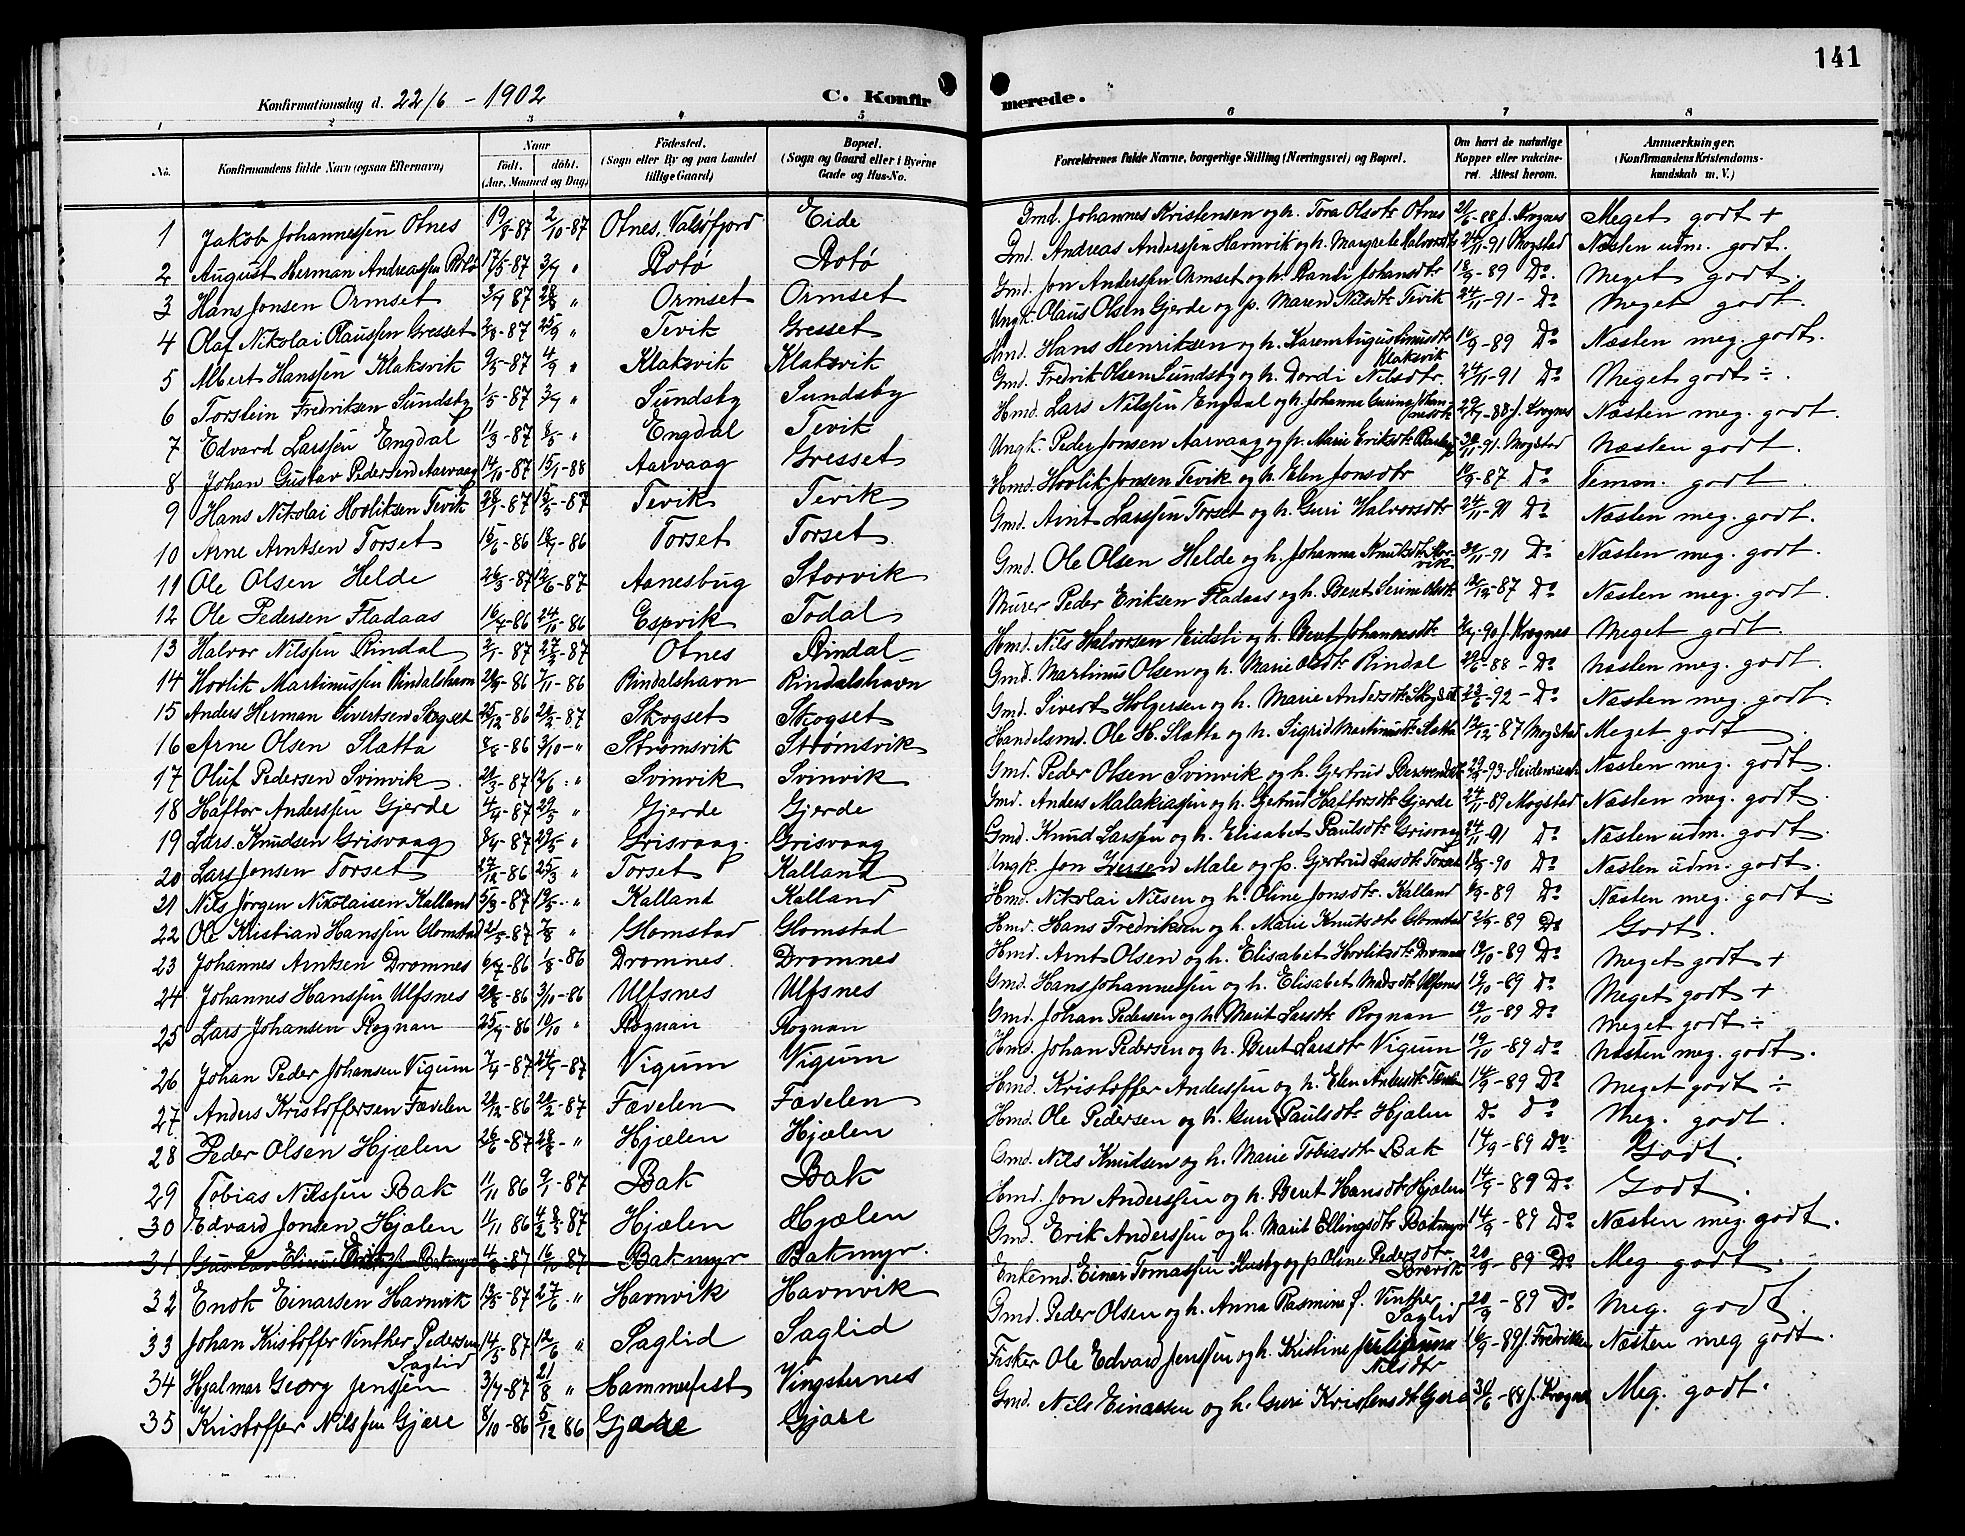 141
Konfirmationsdag d. 22/6 - 1902
C. Konfirmerede.
1 2 3 4 5 6 7 8
No. Konfirmandens fulde Navn (ogsaa Efternavn) Naar født. døbt. (Aar, Maaned og Dag) Fødested. (Sogn eller By og paa Landet tillige Gaard) Bopæl. (Sogn og Gaard eller i Byerne Gade og Hus-No. Forældrenes fulde Navne, borgerlige Stilling (Næringsvei) og Bopæl. Om havt de naturlige Kopper eller vakcineret. Attest herom. Anmærkninger. (Konfirmandens Kristendomskundskab m. V.)
1 Jakob Johannessen Otnes 19/8-87 2/10-87 Otnes, Valsøfjord Eide Gmd. Johannes Kristensen og h. Tora Olsdtr Otnes J. Krognes Meget godt +
2 August Herman Andreassen Rotø 17/5-87 3/7 " Rotø Rotø Gmd. Andreas Anderssen Havnvik og h. Margrete Halvorsdtr 24/11-91 Mogstad Næsten udm. godt.
3 Hans Jonsen Ormset 87 28/8 " Ormset Ormset Gmd. Jon Anderssen Ormset og h. Randi Johansdtr 18/9-89 Do. Meget godt.
4 Olaf Nikolai Olaussen Gresset 2/8-87 25/9 " Tevik Gresset Ungk. Olaus Olsen Gjerde og p. Maren Nilsdtr Tevik 24/11-91 - Do Meget godt.
5 Albert Hanssen Klaksvik 9/5-87 4/9 " Klaksvik Klaksvik Hmd. Hans Henriksen og h. Karen Augustinusdtr Klaksvik 16/9-89 Do Næsten meg. godt.
6 Torstein Fredriksen Sundsby 1/5-87 3/7 " Sundsby Sundsby Gmd. Fredrik Olsen Sundsby og h. Dordi Nilsdtr. 24/11-91 Do Meget godt ÷.
7 Edvard Larssen Engdal 11/3-87 8/5 " Engdal Tevik Hmd. Lars Nilssen Engdal og h. Johanna -88 J. Krognes Næsten meg. godt.
8 Johan Gustav Pedersen Aarvaag 14/10-87 15/1-88 Aarvaag Gresset Ungk. Peder Jonsen Aarvaag og p. Marie Eriksdtr -91 Mogstad Næsten godt
9 Hans Nikolai Hovliksen Tevik 28/1-87 15/5-87 Tevik Tevik Hmd. Hovlik Jonsen Tevik og h. Elen Jonsdtr 10/9-87 Do Temm. godt
10 Arne Arntsen Torset 15/6-86 18/7-86 Torset Torset Gmd. Arnt Larssen Torset og h. Guri Halvorsdtr 24/11-91 Do Næsten meg. godt.
11 Ole Olsen Helde 26/3-87 12/6-87 Aanesbug Storvik Gmd. Ole Olsen Helde og h. Johanna Knutsdtr Storvik -91 Do Næsten meg. godt.
12 Ole Pedersen Fladaas 16/7-86 24/10-86 Espvik Todal Murer Peder Eriksen Fladaas og h. Beret Serine Olsdtr -87 Do Næsten meg. godt.
13 Halvor Nilssen Rindal 2/1-87 27/3-87 Otnes Rindal Hmd. Nils Halvorsen Eidsli og h. Beret Johannesdtr -90 J. Krognes Meget godt.
14 Hovlik Martinussen Rindalshavn -86 7/11-86 Rindalshavn Rindalshavn Gmd. Martinus Olsen og h. Marie Olsdtr Rindal -88 - Do Næsten meg. godt.
15 Anders Herman Sivertsen Skogset 25/12-86 20/2-87 Skogset Skogset Gmd. Sivert Holgersen og h. Marie Andersdtr Skogset -92 - Do Næsten meg. godt.
16 Arne Olsen Slatta 8/8-86 3/10- " Strømsvik Strømsvik Handelsmd. Ole H. Slatta og h. Sigrid Martinusdtr Slatta 12/12-87 Mogstad Meget godt
17 Oluf Pedersen Svinvik 21/3-87 12/6 - " Svinvik Svinvik Gmd. Peder Olsen Svinvik og h. Gjertrud -93 Næsten meg. godt.
18 Haftor Anderssen Gjerde 4/4-87 29/5 " Gjerde Gjerde Gmd. Anders Malakiassen og h. Gjetrud Haftorsdtr Gjerde 24/11-89 Mogstad Næsten meg. godt.
19 Lars Knudsen Grisvaag 8/4-87 29/5 " Grisvaag. Grisvaag Gmd. Knud Larssen og h. Elisabet Paulsdtr Grisvaag 24/11-91 Do Næsten udm. godt.
20 Lars Jonsen Torset 27/12-86 25/3 " Torset Kalland Ungk. Jon Iversen Male og p. Gjertrud Larsdtr Torset 18/9-90 Do Næsten udm. godt.
21 Nils Jørgen Nikolaisen Kalland 5/3-87 19/5- " Kalland Kalland Hmd. Nikolai Nilsen og h. Oline Jonsdtr. Kalland -89 Do Næsten meg. godt.
22 Ole Kristian Hanssen Glomstad 21/5-87 7/8 " Glomstad Glomstad Hmd. Hans Fredriksen og h. Marie Knutsdtr Glomstad -89 Do Godt.
23 Johannes Arntsen Dromnes 6/7-86 1/8-86 Dromnes. Dromnes Hmd. Arnt Olsen og h. Elisabet Hovliksdtr Dromnes 19/10-89 Do Meget godt +
24 Johannes Hanssen Ulfsnes 20/8-86 3/10-86 Ulfsnes Ulfsnes Gmd. Hans Johannessen og h. Elisabet Madsdtr Ulfsnes 19/10-89 Do Meget godt +
25 Lars Johansen Rognan 25/9-86 10/10 " Rognan Rognan Gmd. Johan Pedersen og h. Marit Larsdtr Rognan 19/10-89 Do Meget godt ÷
26 Johan Peder Johansen Vigum 7/4-87 24/7-87 Vigum Vigum Hmd. Johan Pedersen og h. Beret Larsdtr Vigum 19/10-89 Do Næsten meg. godt.
27 Anders Kristoffersen Fævelen 20/12-86 20/2-87 Fævelen Fævelen Hmd. Kristoffer Anderssen og h. Elen Andersdtr 14/9-89 Do Meget godt ÷
28 Peder Olsen Hjælen 26/6-87 28/8- " Hjælen Hjælen Hmd. Ole Pedersen og h. Guri Paulsdtr Hjælen Do Do Meg. godt.
29 Tobias Nilssen Bak 11/11 86 9/1-87 Bak Bak Gmd. Nils Knudsen og h. Marie Tobiasdtr Bak 14/9-89 Do Godt.
30 Edvard Jonsen Hjælen 11/11 86 87 Hjælen Hjælen Hmd. Jon Anderssen og h. Beret Hansdtr Hjælen 14/9-89 Do Godt.
31 Gustav Bakmyr 4/8-87 16/10-87 Bakmyr Bakmyr. Gmd. Erik Anderssen og h. Marit Ellingsdtr Bakmyr 14/9-89 Do Næsten meg. godt.
32 Enok Einarsen Havnvik 87 27/6 " Havnvik Havnvik Enkemd. Einar Tomassen Husby og p Oline Pedersdtr Brevik 20/9-89 Do Meg. godt.
33 Johan Kristoffer Vinther Pedersen Saglid 14/5-87 12/6 " Saglid Saglid Gmd. Peder Olsen og h. Anna Rasmine f. Vinther Saglid 20/9-89 Do Meg. godt.
34 Hjalmar Georg Jenssen 3/7-87 21/8 " Hammerfest Vingsternes Fisker Ole Edvard Jenssen og h. Kristine Julianna Nilsdtr 16/9-89 J. Fredriksen Næsten meg godt.
35 Kristoffer Nilssen Gjøre 8/10-86 5/12 86 Gjøre Gjøre Gmd. Nils Einarsen og h. Guri Kristensdtr Gjøre -88 J. Krognes Meg. godt.